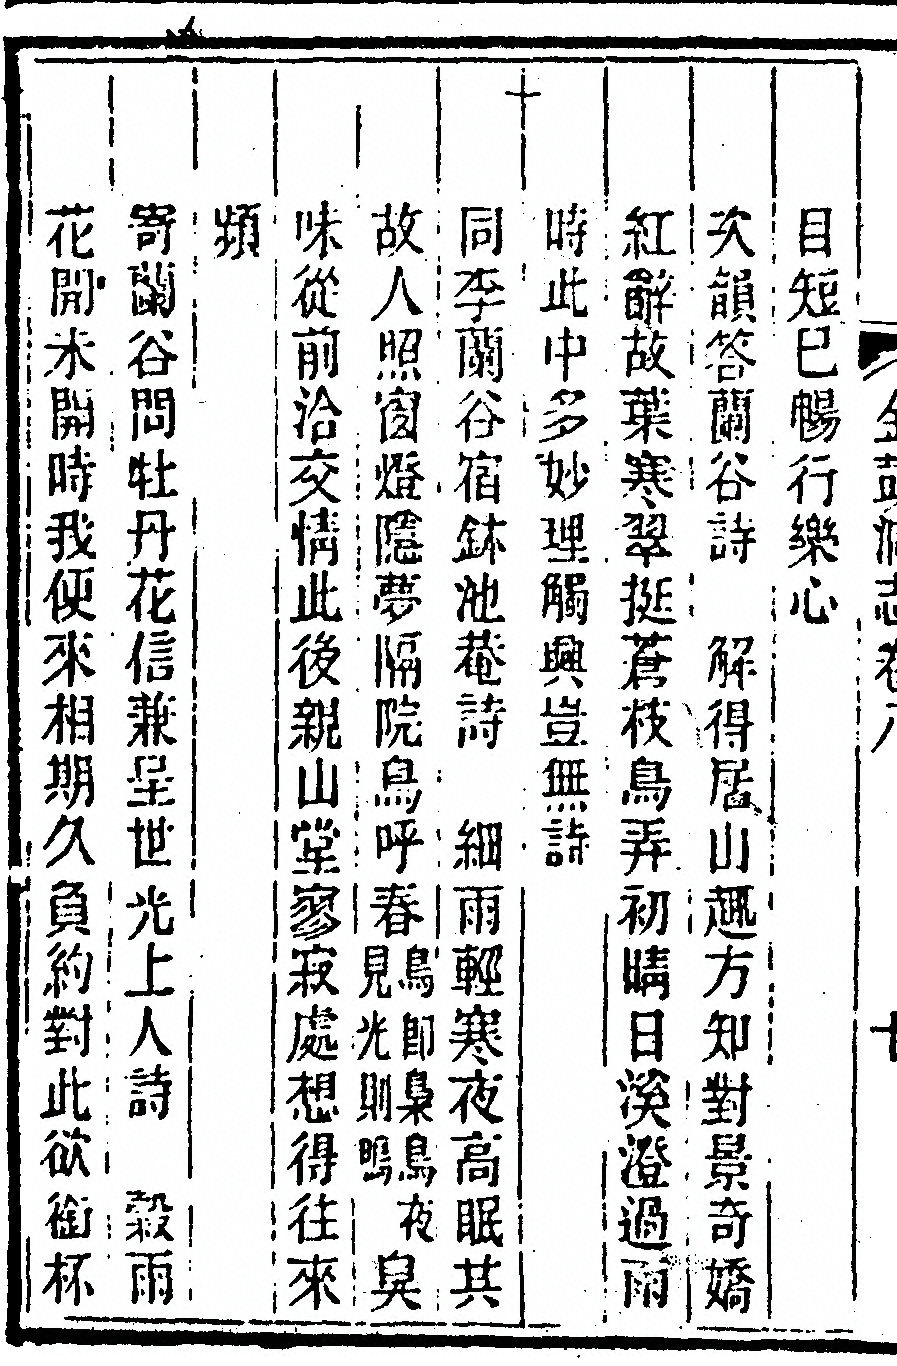 金鼓洞志卷八　十
目短巳暢行樂心
次韻答蘭谷詩　解得居山趣方知對景奇嬌
紅辭故葉寒翠挺蒼枝鳥弄初晴日溪澄過雨
時此中多妙理觸興豈無詩
同李蘭谷宿鉢池菴詩　細雨輕寒夜高眠共
故人照窗燈隱夢隔院鳥呼春鳥卽梟鳥夜見光則鳴臭
味從前洽交情此後親山堂寥寂處想得往來
頻
寄蘭谷問牡丹花信兼呈世光上人詩　穀雨
花開未開時我便來相期久負約對此欲銜杯